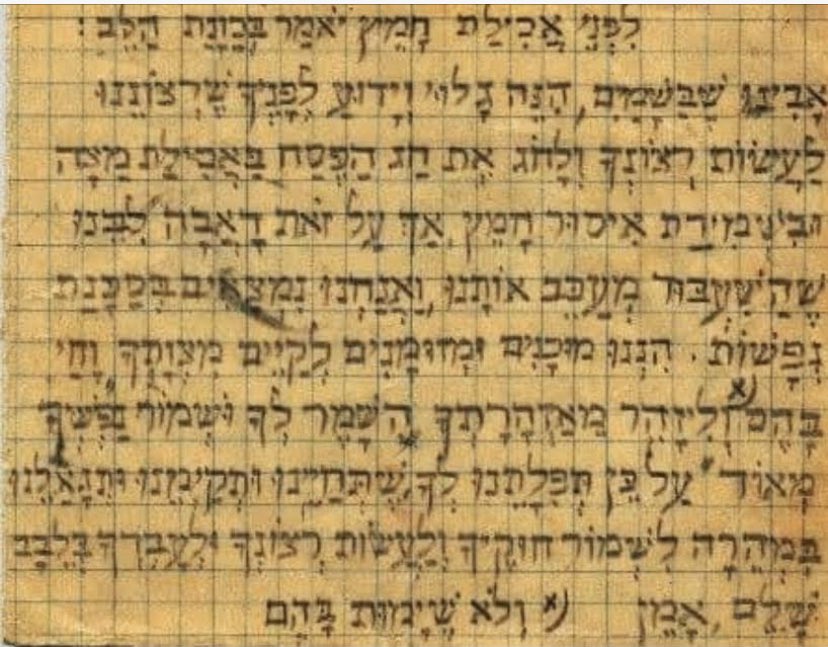 לִפְנֵי אֲכִילַת חָמֵץ יֹאמַר בְּכַוָּנַת הַלֵּב :
אָבִינוּ שֶׁבַּשָּׁמַיִם, הִנֵּה גָּלוּי וְיָדוּעַ לְפָנֶיךָ שֶׁרְצוֹנֵנוּ
לַעֲשׂוֹת רְצוֹנְךָ וְלָחוֹג אֶת חַג הַפֶּסַח בַּאֲכִילַת מַצָּה
וּבִשְׁמִירַת אִיסוּר חָמֵץ, אַךְ עַל זֹאת דָּאֲבָה לִבֵּנוּ
שֶׁהַשִּׁעְבּוּד מְעַכֵּב אוֹתָנוּ, וַאֲנַחְנוּ נִמְצָאִים בְּסַכָּנַת
נְפָשׁוֹת. הִנְנוּ מוּכָנִים וּמְזוּמָּנִים לְקַיֵּים מִצְוֹתֶךָ וָחַי
בָּהֶם x) וְלִיזָּהֵר מֵאַזְהָרָתְךָ הִשָּׁמֶר לְךָ וּשְׁמוֹר נַפְשְׁךָ
מְאוֹד עַל כֵּן תְּפִלָּתֵנוּ לְךָ, שֶׁתְּחַיֵּינוּ וּתְקַיְּמֵנוּ וְתִגְאָלֵנוּ
בִּמְהֵרָה לִשְׁמוֹר חוּקֶיךָ וְלַעֲשׂוֹת רְצוֹנְךָ וּלְעָבְדְךָ בְּלֵבָב
שָׁלֵם, אָמֵן x) וְלֹא שֶׁיָּמוּת בָּהֶם